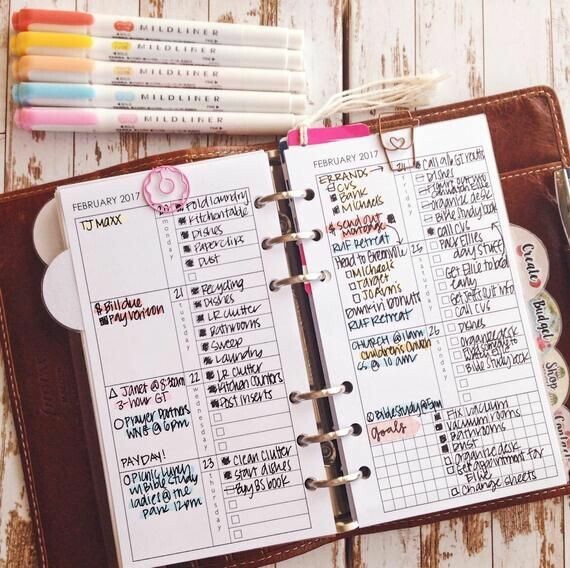 MILDLINER
MILDLINER
MILDLINER
MILDLINER
MILDLINER
FEBRUARY 2017
TJ Maxx
20
monday
Fold laundry
Kitchen table
Dishes
Paperclips
Dust
$ Bill due
Pay verizon
21
tuesday
Recycling
Dishes
LR clutter
Bathrooms
Sweep
Laundry
Janet @ 8:30am
3-hour GT
Prayer Partners
WNB @ 6pm
22
wednesday
LR clutter
Kitchen counters
Post inserts
PAYDAY!
Picnic lunch
w/ Bible study
ladies @ the
park 12pm
23
thursday
Clean clutter
Start dishes
Buy BS book
FEBRUARY 2017
ERRANDS
CVS
Bank
Michaels
$ send out
mortgage
RUF Retreat
24
friday
Call
Dishes
organize desk
Bible Study book
call CVS
Head to Greenville
Michaels
Target
JoAnn's
Dunkin Donuts
RUF Retreat
25
saturday
Pack Ellie's
day stuff
Get Ellie to bed
early
call CVS
CHURCH @ 11am
children's church
@ 10am
26
sunday
Dishes
Organize desk
Bible Study book
Bible study @ 5pm
Goals
Fix vacuum
Vacuum rooms
Bathrooms
Dust
Organize desk
Get appointment for
Ellie
Change sheets
Create
Budget
Shop